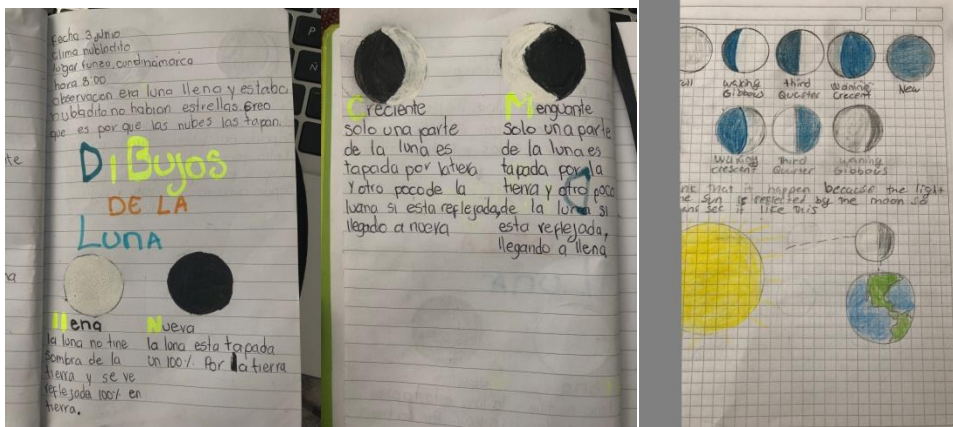 fecha 3 junio
clima nubladito
lugar funza, cundinamarca
hora 8:00
observacon era luna llena y estaba
nubladito no habian estrellas. creo
que es por que las nubes las tapan.
DiBujos
DE LA
LUNA
llena
la luna no tine
sombra de la
tierra y se ve
reflejada 100% en
tierra.
Nueva
la luna esta tapada
un 100% Por la tierra
Creciente
solo una parte
de la luna es
tapada por
Y otro poco de la
si esta reflejada,
llegando a nueva
Menguante
Solo una parte
de la luna es
tapada por la
tierra y otro poco
de la luna si
esta reflejada,
llegando a llena
waxing
Gibbous
third
Quarter
waning
Crecent
New
waxing
crescent
third
Quarter
waning
Gibbous
that it happen because the light
sun is reflected by the moon so
see it like this